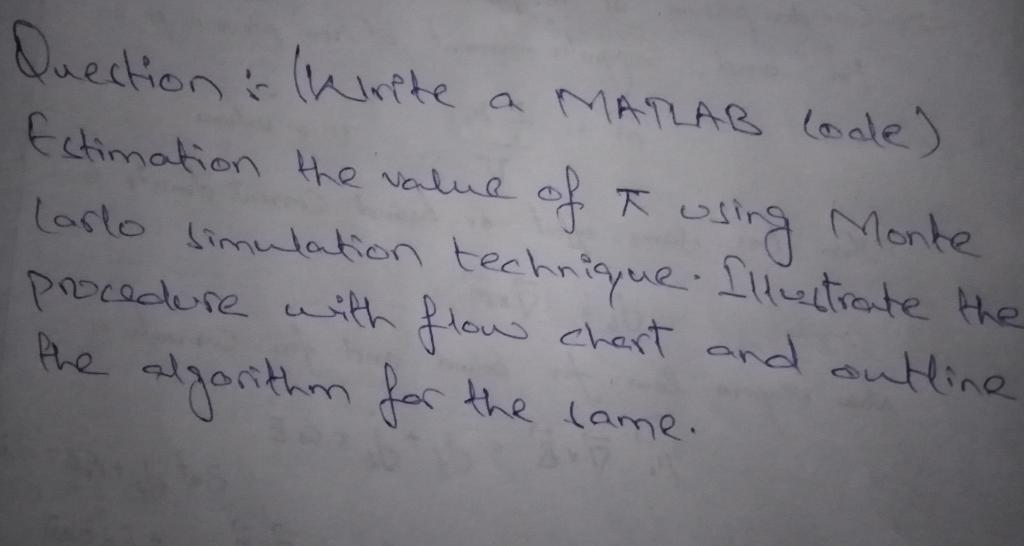 Question : (Write a MATLAB Code)
Estimation the value of π using Monte
Carlo simulation technique. Illustrate the
procedure with flow chart and outline
the algorithm for the same.